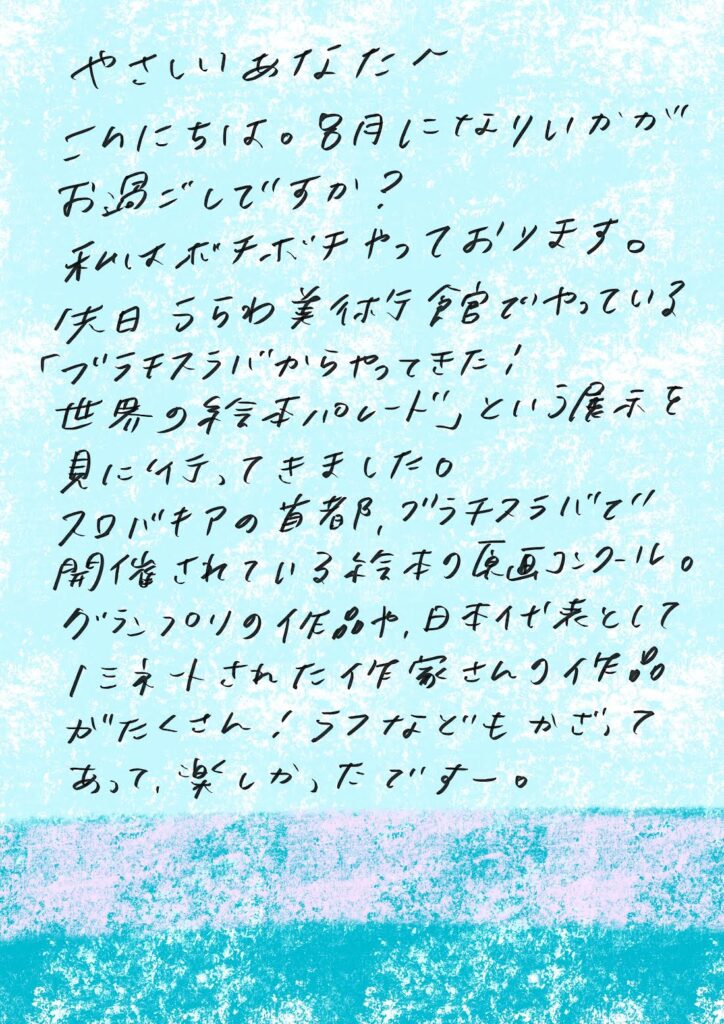 やさしいあなたへ
こんにちは。8月になりいかが
お過ごしですか？
私はボチボチやっております。
先日うらわ美術館でやっている
「ブラチスラバからやってきた！
世界の絵本パレード」という展示を
見に行ってきました。
スロバキアの首都、ブラチスラバで
開催されている絵本の原画コンクール。
グランプリの作品や、日本代表として
ノミネートされた作家さんの作品
がたくさん！ラフなどもかざって
あって、楽しかったですー。